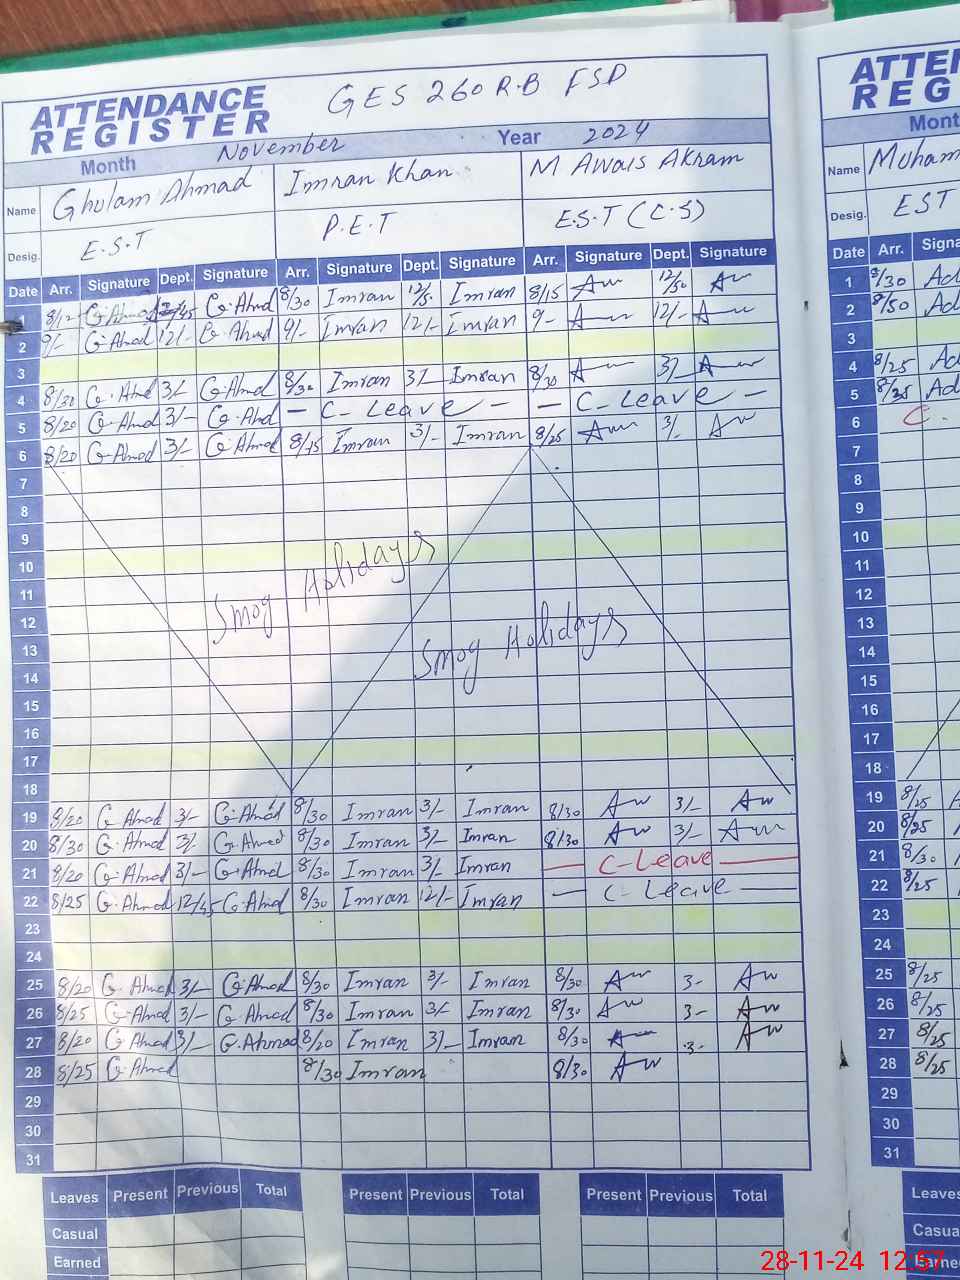 ATTENDANCE REGISTER GES 260 R.B FSD
Month November Year 2024
Name Ghulam Ahmad Imran Khan M Awais Akram
Desig. E.S.T P.E.T E.S.T (C.S)
Date Arr. Signature Dept. Signature Arr. Signature Dept. Signature Arr. Signature Dept. Signature
1 8/12 G.Ahmad 12/45 G.Ahmd 8/30 Imran 12/50 Imran 8/15 Aw 12/50 Aw
2 9/- G.Ahmd 12/- G.Ahmd 9/- Imran 12/- Imran 9- 12/-
3
4 8/30 G.Ahmd 3/- G.Ahmd 8/30 Imran 3/- Imran 8/30 3/-
5 8/20 G.Ahmd 3/- G.Ahd - C-Leave - - C-Leave -
6 8/20 G.Ahmd 3/- G.Ahmd 8/15 Imran 3/- Imran 8/25 Aw 3/- Aw
7
8
9
10
11
12
13
14
15
16
17
18
Smog Holidays
Smog Holidays
19 8/20 G.Ahmd 3/- G.Ahmd 8/30 Imran 3/- Imran 8/30 Aw 3/- Aw
20 8/30 G.Ahmd 3/- G.Ahmed 8/30 Imran 3/- Imran 8/30 Aw 3/- Aw
21 8/20 G.Ahmd 3/- G.Ahmd 8/30 Imran 3/- Imran - C-Leave -
22 8/25 G.Ahmd 12/45 G.Ahmd 8/30 Imran 12/- Imran - C-Leave -
23
24
25 8/20 G.Ahmd 3/- G.Ahmd 8/30 Imran 3/- Imran 8/30 Aw 3- Aw
26 8/25 G.Ahmd 3/- G.Ahmd 8/30 Imran 3/- Imran 8/30 Aw 3- Aw
27 8/20 G.Ahmd 3/- G.Ahmad 8/20 Imran 3/- Imran 8/30 3- Aw
28 8/25 G.Ahmed 8/30 Imran 8/30 Aw
29
30
31
Leaves Present Previous Total Present Previous Total Present Previous Total
Casual
Earned
ATTEN
REG
Mont
Name Muham
Desig. EST
Date Arr. Signa
1 8/30 Ad
2 8/50 Ad
3
4 8/25 Ad
5 8/25 Ad
6 C.
7
8
9
10
11
12
13
14
15
16
17
18
19 8/25 A
20 8/25
21 8/30
22 8/25
23
24
25 8/25
26 8/25
27 8/25
28 8/25
29
30
31
Leaves
Casua
Earne
28-11-24 12.57